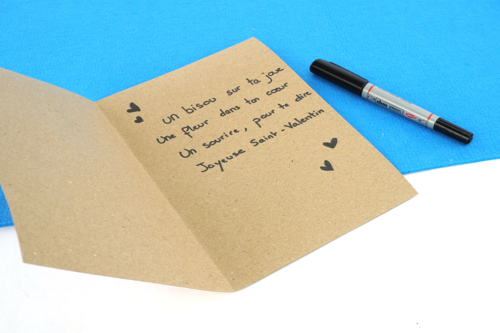 Un bisou sur ta joue
Une fleur dans ton cœur
Un sourire, pour te dire
Joyeuse Saint-Valentin